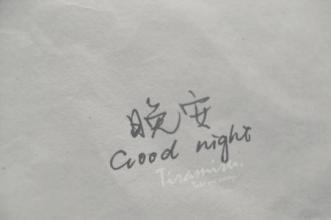 晚安
Good night
Tiramisu.